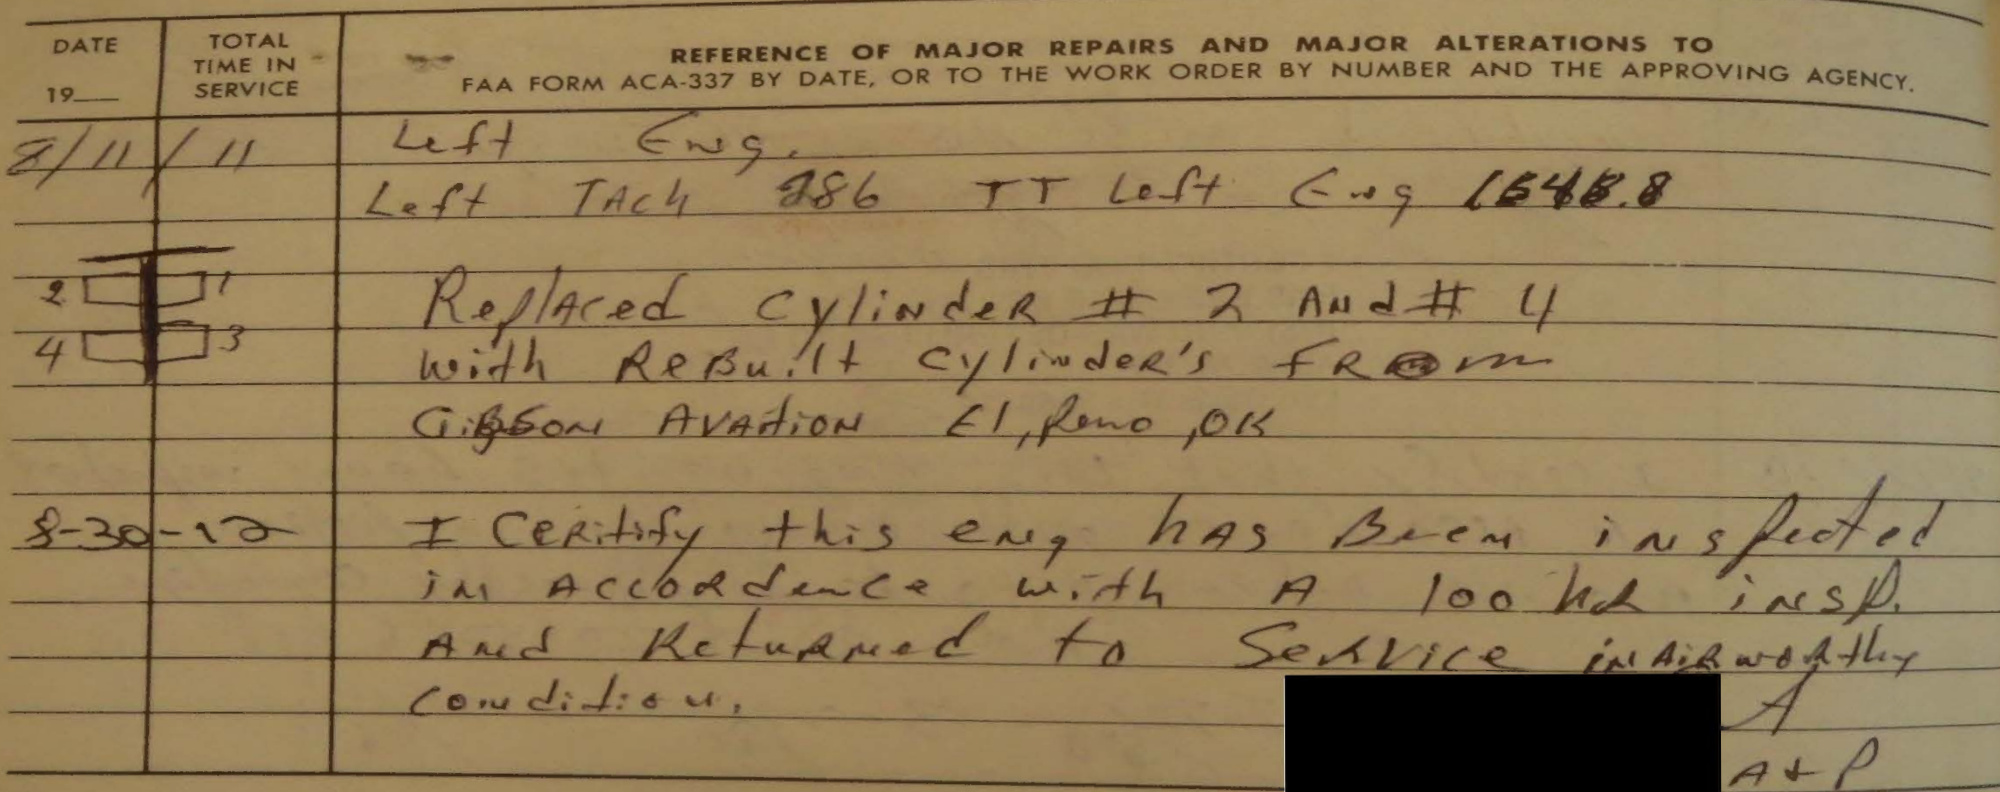 DATE
19___
TOTAL
TIME IN
SERVICE
REFERENCE OF MAJOR REPAIRS AND MAJOR ALTERATIONS TO
FAA FORM ACA-337 BY DATE, OR TO THE WORK ORDER BY NUMBER AND THE APPROVING AGENCY.
8/11/11 Left Eng.
Left TAch 286 TT Left Eng
2 1
4 3
Replaced Cylinder # 2 And # 4
with ReBuilt Cylinder's FRom
GiBSON AVAtion El, Reno, OK
8-30-12 I CeRitify this eng hAs Been inspected
in Accordence with A 100 hR insp.
And Returned to Service in Airworthy
Condition.
A & P